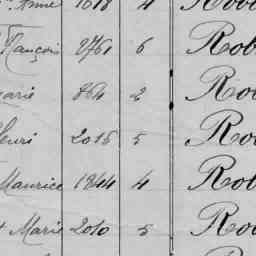 Anne 1618 4 Rob
François 2761 6 Rob
Marie 864 2 Rob
Henri 2015 5 Rob
Maurice 1844 4 Rob
t Marie 2010 5 Rob